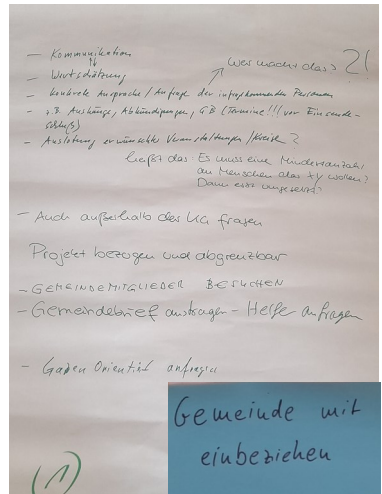 - Kommunikation
- Wertschätzung
Wer macht das?
?!
- konkrete Ansprache / Anfrage der infragekommenden Personen
- z.B. Aushänge, Abkündigungen, GB (Termine!!! vor Einsende-
schluß)
- Auslotung erwünschter Veranstaltungen / Kreise?
heißt das: Es muss eine Mindestanzahl
an Menschen also xy wollen?
Dann erst umgesetzt?
- Auch außerhalb des KG fragen
Projekt bezogen und abgrenzbar
- GEMEINDEMITGLIEDER BESUCHEN
- Gemeindebrief austragen - Helfer anfragen
- Gaben Orientiert anfragen
(1)
Gemeinde mit
einbeziehen